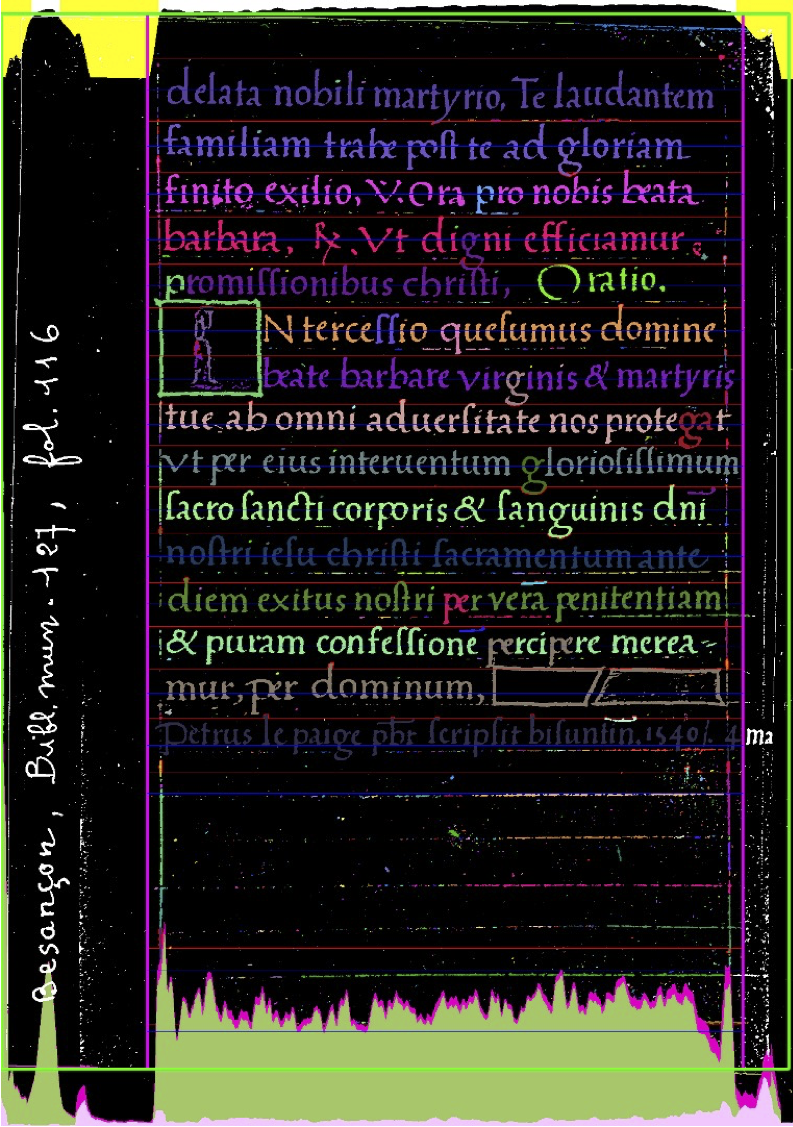 delata nobili martyrio, Te laudantem
familiam trahe post te ad gloriam
finito exilio, V. Ora pro nobis beata
barbara, ℟. Vt digni efficiamur
promiſſionibus chriſti, Oratio.
IN terceſſio queſumus domine
beate barbare virginis & martyris
tue ab omni aduerſitate nos protegat
vt per eius interuentum glorioſiſſimum
ſacro ſancti corporis & ſanguinis dni
noſtri ieſu chriſti ſacramentum ante
diem exitus noſtri per vera penitentiam
& puram confeſſione percipere merea-
mur, per dominum,
Petrus le paige pbr ſcripſit biſuntin. 1540. 4 ma
Besançon, Bibl. mun. 127, fol. 116